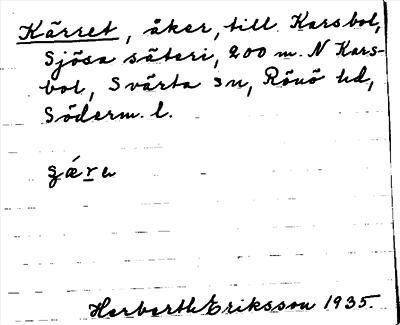 Kärret, åker, till Karsbol,
Sjösa säteri, 200 m. N Kars-
bol, Svärta sn, Rönö hd,
Söderm. l.
Herberth Eriksson 1935.